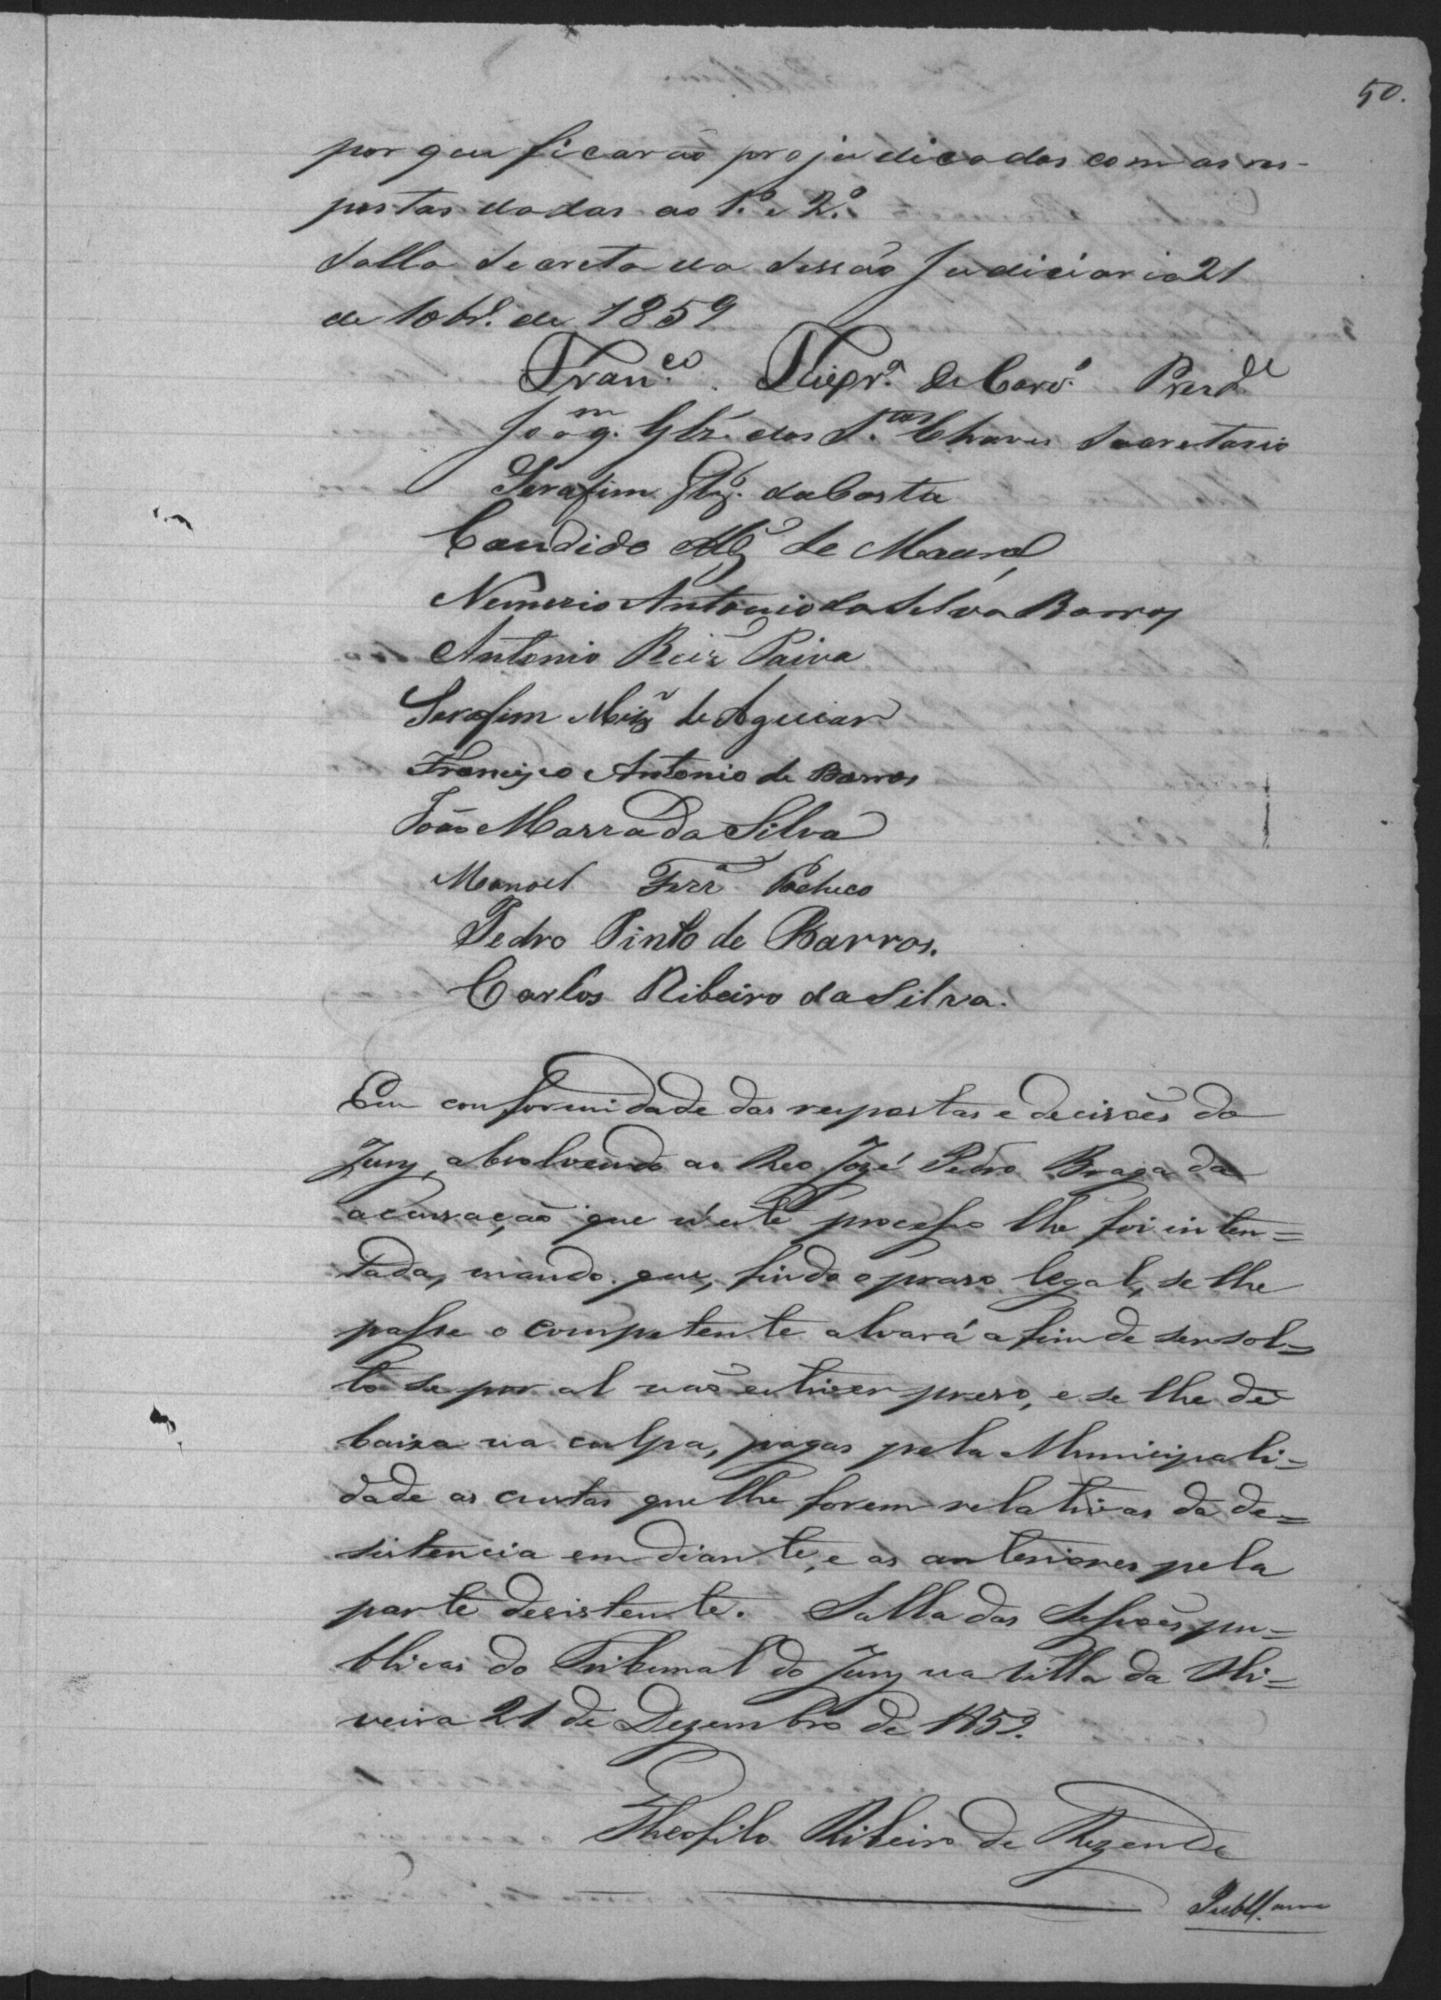 50.
por que ficarão projudicados com as res-
postas dadas ao 1.º e 2.º
Salla Secreta da Sessão Judiciaria 21
de 10br.º de 1859
Fran.co de Carv.º Presd.e
Joaq.m Glz. dos S.tos Chaves Secretario
Serafim Glz. da Costa
Candido de
Nemezio Antonio da Silva Barros
Antonio Paiva
Serafim de Aguiar
Francisco Antonio de Barros
João Marra da Silva
Manoel Ferr.a Pacheco
Pedro Pinto de Barros.
Carlos Ribeiro da Silva.
Em conformidade das respostas e decisões do
Jury, absolvendo ao Reo José Pedro Braga da
accusação, que n'este processo lhe foi inten=
tada, mando que, findo o praso legal, se lhe
passe o competente alvará a fim de ser sol=
to se por al não estiver preso, e se lhe dê
baixa na culpa, pagas pela Municipali=
dade as custas que lhe forem relativas da de=
sistencia em diante, e as anteriores pela
parte desistente. Salla das Sessões pu=
blicas do Tribunal do Jury na Villa da Oli=
veira 21 de Dezembro de 1859.
Theofilo Ribeiro de Rezende